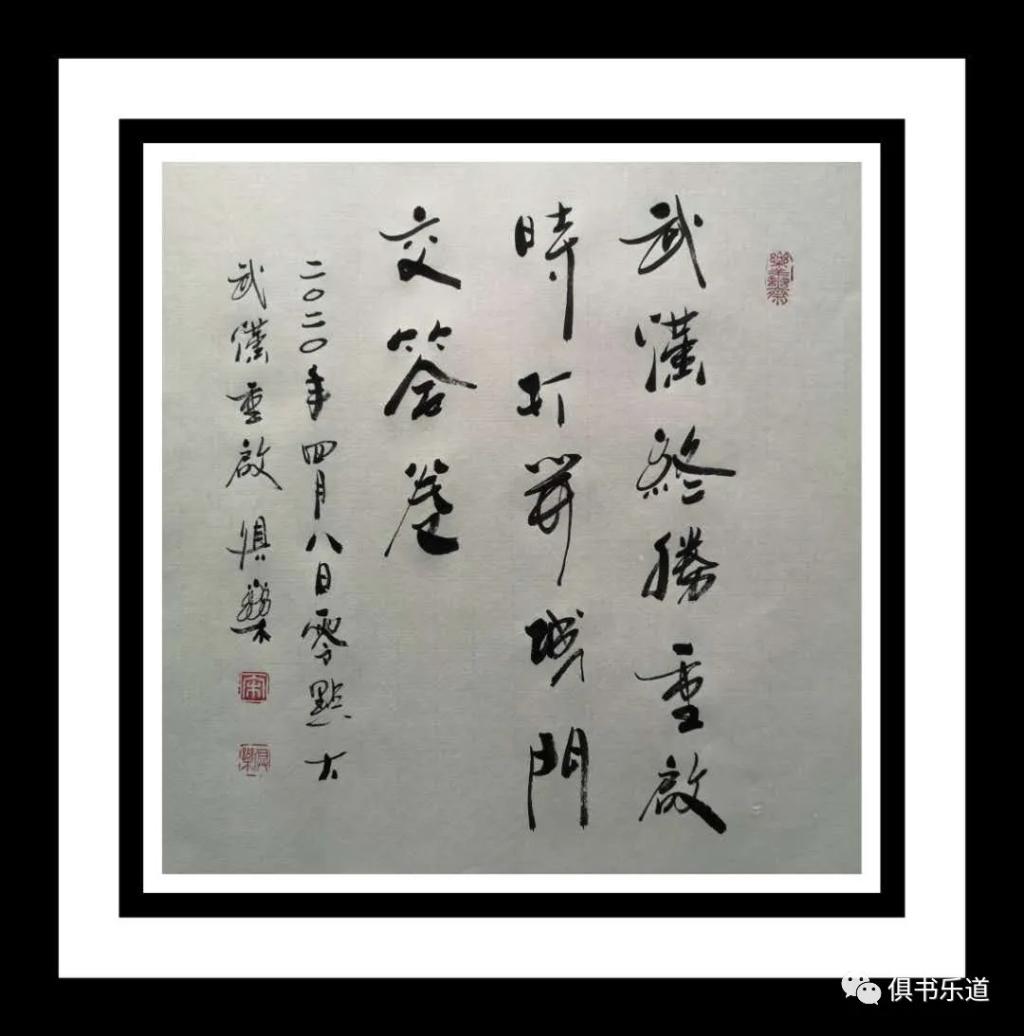 武漢終勝重啟
時打開城門
交答卷
二〇二〇年四月八日零點大
武漢重啟 俱樂
俱书乐道